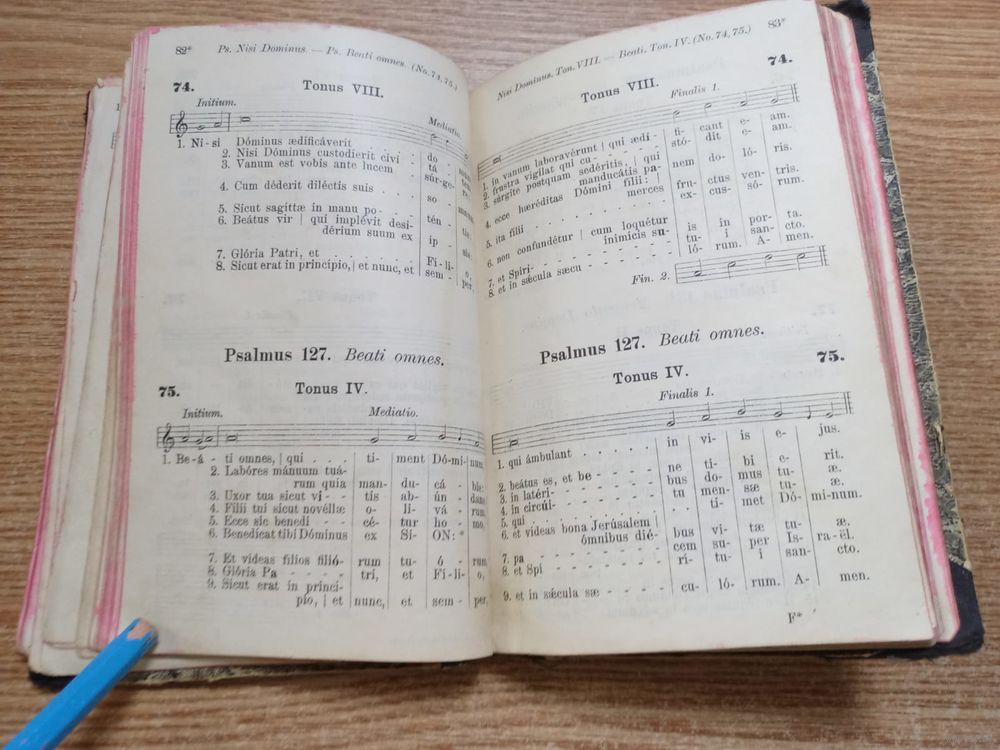 82*
Ps. Nisi Dominus. — Ps. Beati omnes. (No. 74, 75.)
74.
Tonus VIII.
Initium.
Mediatio.
1. Ni - si Dóminus ædificáverit . . .
2. Nisi Dóminus custodíerit civi - do -
3. Vanum est vobis ante lucem tá -
súr - ge -
4. Cum déderit diléctis suis . . . so -
5. Sicut sagíttæ in manu po - . . tén -
6. Beátus vir | qui implévit desi-
dérium suum ex ip -
7. Glória Patri, et . . . . . Fí - li - o,
8. Sicut erat in princípio, | et nunc, et sem - per,
Psalmus 127. Beati omnes.
75.
Tonus IV.
Initium.
Mediatio.
1. Be - á - ti omnes, | qui . . . ti - ment Dó - mi - num
2. Labóres mánuum tuá-
rum quia man - du - cá - bis:
3. Uxor tua sicut vi - - - tis ab - ún - dans
4. Fílii tui sicut novéllæ o - li - vá - rum
5. Ecce sic benedi - - cé - tur ho - mo,
6. Benedícat tibi Dóminus ex Si - ON: *
7. Et vídeas fílios filió- rum tu - ó - rum
8. Glória Pa - - - - tri, et Fí - li - o,
9. Sicut erat in princí-
pio, | et nunc, et sem - per,
83*
Nisi Dominus. Ton. VIII. — Beati. Ton. IV. (No. 74, 75.)
74.
Tonus VIII.
Finalis 1.
1. in vanum laboravérunt | qui ædi - ti - cant e - am.
2. frustra vígilat qui cu - . . . . stó - dit e - am.
3. súrgite postquam sedéritis, | qui
manducátis pa- nem do - ló - ris.
4. ecce hæréditas Dómini fílii: |
merces fru - ctus ven - tris.
5. ita fílii . . . . . . . . ex - cus - só - rum.
6. non confundétur | cum loquétur
inimícis su- is in por - ta.
7. et Spirí- . . . . . . tu - i san - cto.
8. et in sǽcula sæcu - - - - ló - rum. A - men.
Fin. 2.
Psalmus 127. Beati omnes.
75.
Tonus IV.
Finalis 1.
1. qui ámbulant . . . . . in vi - is e - jus.
2. beátus es, et be - - - - ne ti - bi e - rit.
3. in latéri- . . . . . bus do - mus tu - æ.
4. in circúi- . . . . . tu men - sæ tu - æ.
5. qui . . . . . . . ti - met Dó - mi-num.
6. et vídeas bona Jerúsalem |
ómnibus dié- bus vi - tæ tu - æ.
7. pa - - - - cem su - per Is - ra - ël.
8. et Spi - - - - rí - tu - i san - cto.
9. et in sǽcula sæ - - - - cu - ló - rum. A - men.
F*